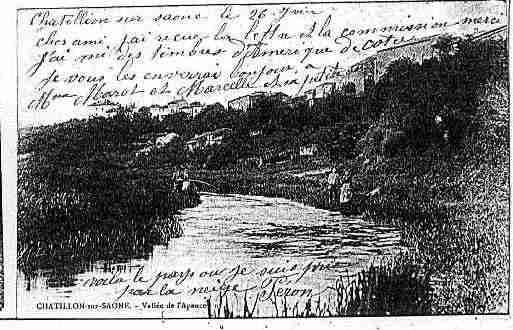 Chatillion sur saone le 26 Juin
cher ami j'ai reçu la lettre et la commission merci
j'ai mi des timbres d'Amerique de coté
je vous les enverrai bonjour à
Mme Marot et Marcelle et la petite
voila le pays ou je suis pris
par la neige Féron
CHATILLON-sur-SAONE. - Vallée de l'Apance